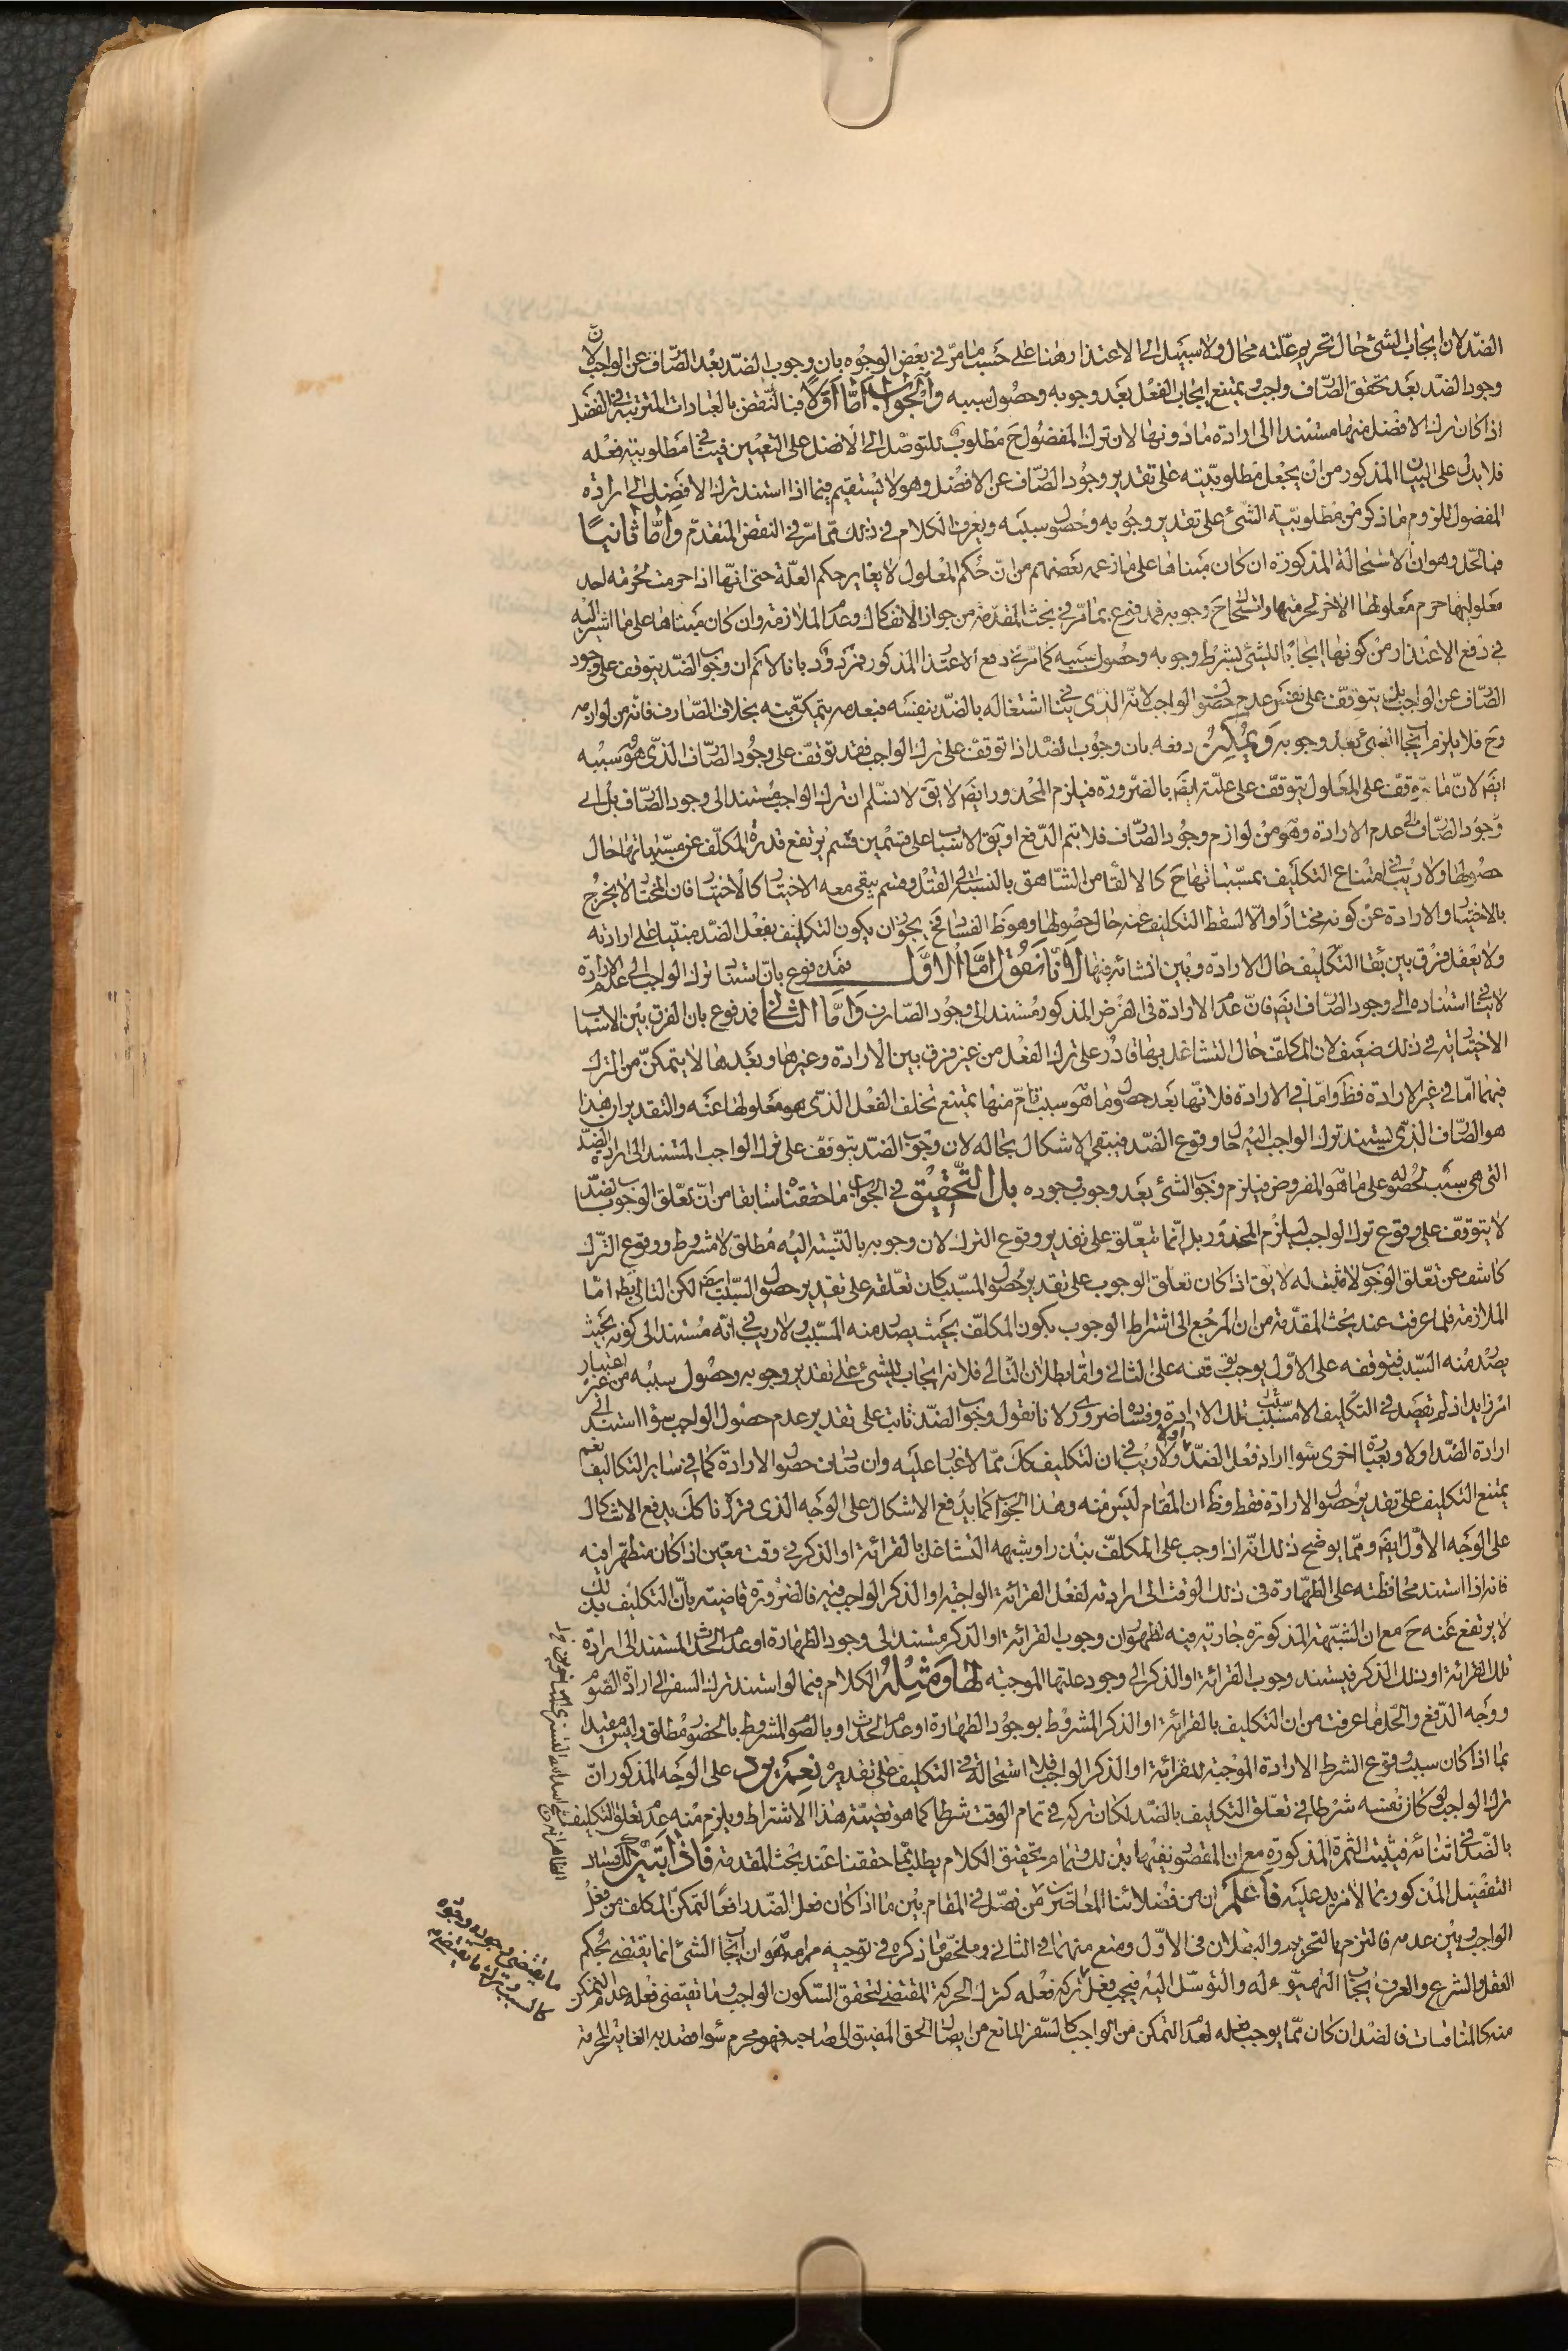 الضد لان ايجاب الشئ حال تحريم علته محال ولا سبيل الى الاعتذار هنا على حسب ما مر في بعض الوجوه بان وجوب الضد بعد الصارف عن الواجب لان
وجود الضد بعد تحقق الصارف واجب يمتنع ايجاب الفعل بعد وجوبه وحصول سببه والجواب اما اولا فبالنقض بالعبادات المترتبة في الفضل
اذا كان ترك الافضل منها مستندا الى ارادة ما دونها لان ترك المفضول ح مطلوب للتوصل الى الافضل على التعيين فينافي مطلوبية فعله
فلا بد على البيان المذكور من ان يجعل مطلوبيته على تقدير وجود الصارف عن الافضل وهو لا يستقيم فيما اذا استند ترك الافضل الى ارادة
المفضول للزوم ما ذكر من مطلوبية الشئ على تقدير وجوبه وحصول سببه ويعرف الكلام في ذلك مما مر في النقض المتقدم واما ثانيا
فبالحل وهو ان الاستحالة المذكورة ان كان مبناها على ما زعمه بعضهم من ان حكم المعلول لا يغاير حكم العلة حتى انها اذا حرمت لحرمة احد
معلوليها حرم معلولها الاخر لحرمتها واستحال ح وجوبه فمدفوع بما مر في بحث المقدمة من جواز الانفكاك وعدم الملازمة وان كان مبناها على ما اشير اليه
في دفع الاعتذار من كونها ايجابا للشئ بشرط وجوبه وحصول سببه كما مر في دفع الاعتذار المذكور فمردود بانا لا نم ان وجوب الضد يتوقف على وجود
الصارف عن الواجب بل يتوقف على نفس عدم حصول الواجب لانه الذي ينافي اشتغاله بالضد بنفسه فبعدمه يتمكن منه بخلاف الصارف فانه من لوازمه
وح فلا يلزم ايجاب الشئ بعد وجوبه ويمكن دفعه بان وجوب الضد اذا توقف على ترك الواجب فقد توقف على وجود الصارف الذي هو سببه
ايضا لان ما يتوقف على المعلول يتوقف على علته ايضا بالضرورة فيلزم المحذور ايضا لا يق لا نسلم ان ترك الواجب مستند الى وجود الصارف بل الى
وجود الصارف الى عدم الارادة وهو من لوازم وجود الصارف فلا يتم الدفع او يق الاسباب على قسمين قسم يرتفع قدرة المكلف عن مسبباتها حال
حصولها ولا ريب في امتناع التكليف بمسبباتها ح كالالقاء من الشاهق بالنسبة الى القتل وقسم يبقى معه الاختيار كالاختيار فان المختار لا يخرج
بالاختيار والارادة عن كونه مختارا والا لسقط التكليف عنه حال حصولها وهو ظ الفساد فح يجوز ان يكون التكليف بفعل الضد مبتنيا على ارادته
ولا يعقل فرق بين بقاء التكليف حال الارادة وبين انشائه فيها لانا نقول اما الاول فمدفوع بان استناد ترك الواجب الى عدم الارادة
لا ينافي استناده الى وجود الصارف ايضا فان عدم الارادة في الفرض المذكور مستند الى وجود الصارف واما الثاني فمدفوع بان الفرق بين الاسباب
الاختيارية في ذلك ضعيف لان المكلف حال التشاغل بها قادر على ترك الفعل من غير فرق بين الارادة وغيرها وبعدها لا يتمكن من الترك
فيهما اما في غير الارادة فظ واما في الارادة فلانها بعد حصول ما هو سبب تام منها يمتنع تخلف الفعل الذي هو معلولها عنه والتقدير ان هذا
هو الصارف الذي يستند ترك الواجب اليه حال وقوع الضد فيبقى الاشكال بحاله لان وجوب الضد يتوقف على ترك الواجب المستند الى ارادة الضد
التي هي سبب لحصوله على ما هو المفروض فيلزم وجوب الشئ بعد وجوب وجوده بل التحقيق في الجواب ما حققناه سابقا من ان تعلق الوجوب بالضد
لا يتوقف على وقوع ترك الواجب ليلزم المحذور بل انما يتعلق على تقدير وقوع الترك لان وجوبه بالنسبة اليه مطلق لا مشروط ووقوع الترك
كاشف عن تعلق الوجوب لا مثبت له لا يق اذا كان تعلق الوجوب على تقدير حصول المسبب كان تعلقه على تقدير حصول السبب ايضا لكن التالي بط اما
الملازمة فلما عرفت عند بحث المقدمة من ان المرجع الى اشتراط الوجوب بكون المكلف بحيث يصدر منه المسبب ولا ريب في انه مستند الى كونه بحيث
يصدر منه السبب فتوقفه على الاول يوجب توقفه على الثاني واما بطلان التالي فلانه ايجاب للشئ على تقدير وجوبه وحصول سببه من غير اعتبار
امر زايد اذ لم يقصد في التكليف الا مسبب تلك الارادة وفساده ضروري لانا نقول وجوب الضد ثابت على تقدير عدم حصول الواجب سواء استند الى
ارادة الضد اولا وبعبارة اخرى سواء اراد فعل الضد اولا ولا ريب في ان التكليف كك مما لا غبار عليه وان صادف حصول الارادة كما في ساير التكاليف نعم
يمتنع التكليف على تقدير حصول الارادة فقط وظ ان المقام ليس منه وهذا الجواب كما يدفع الاشكال على الوجه الذي قررنا كك يدفع الاشكال
على الوجه الاول ايضا ومما يوضح ذلك انه اذا وجب على المكلف بنذر او شبهه التشاغل بالقرائة او الذكر في وقت معين اذا كان متطهرا فيه
فانه اذا استند محافظته على الطهارة في ذلك الوقت الى ارادته لفعل القرائة الواجبة او الذكر الواجب فيه فالضرورة قاضية بان التكليف بذلك
لا يرتفع عنه ح مع ان الشبهة المذكورة جارية فيه لظهور ان وجوب القرائة او الذكر مستند الى وجود الطهارة او عدم الحدث المستند الى ارادة
تلك القرائة او ذلك الذكر فيستند وجوب القرائة او الذكر الى وجود علتها الموجبة لها ومثله الكلام فيما لو استند ترك السفر الى ارادة الصوم
ووجه الدفع والحل ما عرفت من ان التكليف بالقرائة او الذكر المشروط بوجود الطهارة او عدم الحدث او بالصوم المشروط بالحضور مطلق وليس مقيدا
بما اذا كان سبب وقوع الشرط الارادة الموجبة للقرائة او الذكر الواجب فلا استحالة في التكليف على تقديره نعم يرد على الوجه المذكور ان
ترك الواجب لو كان نفسه شرطا في تعلق التكليف بالضد لكان تركه في تمام الوقت شرطا كما هو قضية هذا الاشتراط ويلزم منه عدم تعلق التكليف
بالضد في اثنائه فيثبت الثمرة المذكورة مع ان المقصود نفيها بذلك وتمام تحقيق الكلام يطلب مما حققنا عند بحث المقدمة فاذا تبين لك فساد
التفصيل المذكور بما لا مزيد عليه فاعلم ان من فضلائنا المعاصرين من فصل في المقام بين ما اذا كان فعل الضد رافعا لتمكن المكلف من فعل
الواجب وبين عدمه فالتزم بالتحريم والبطلان في الاول ومنع منهما في الثاني وملخص ما ذكره في توجيه مرامه هو ان ايجاب الشئ انما يقتضي بحكم
العقل والشرع والعرف ايجاب التهيؤ له والتوسل اليه فيجب فعل تركه فعله كترك الحركة المقتضي لتحقق السكون الواجب وما تقتضي فعله عدم التمكن
منه كالمنافيات فالضد ان كان مما يوجب فعله لعدم التمكن من الواجب كالسفر المانع من ايصال الحق المضيق الى صاحبه فهو محرم سواء قصد به الغاية المحرمة
ما يقتضي وجوده وجوده
كالسبب وترك ما يقتضي